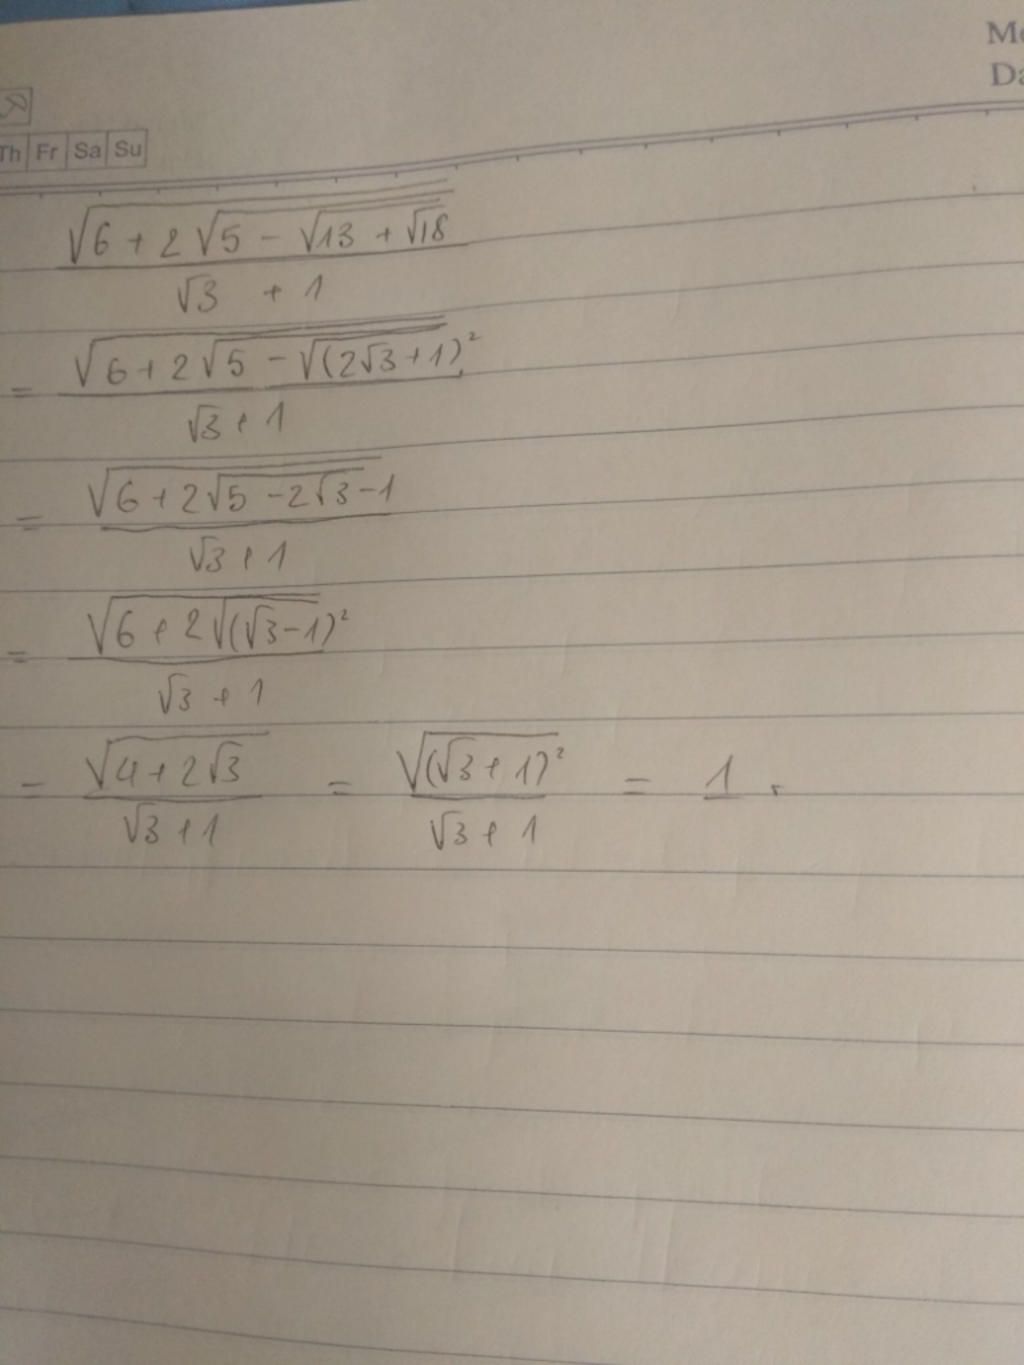 Th Fr Sa Su
√6 + 2√5 - √13 + √18
√3 + 1
= √6 + 2√5 - √(2√3 + 1)²
√3 + 1
= √6 + 2√5 - 2√3 - 1
√3 + 1
= √6 + 2√(√3 - 1)²
√3 + 1
= √4 + 2√3 = √(√3 + 1)² = 1.
√3 + 1 √3 + 1